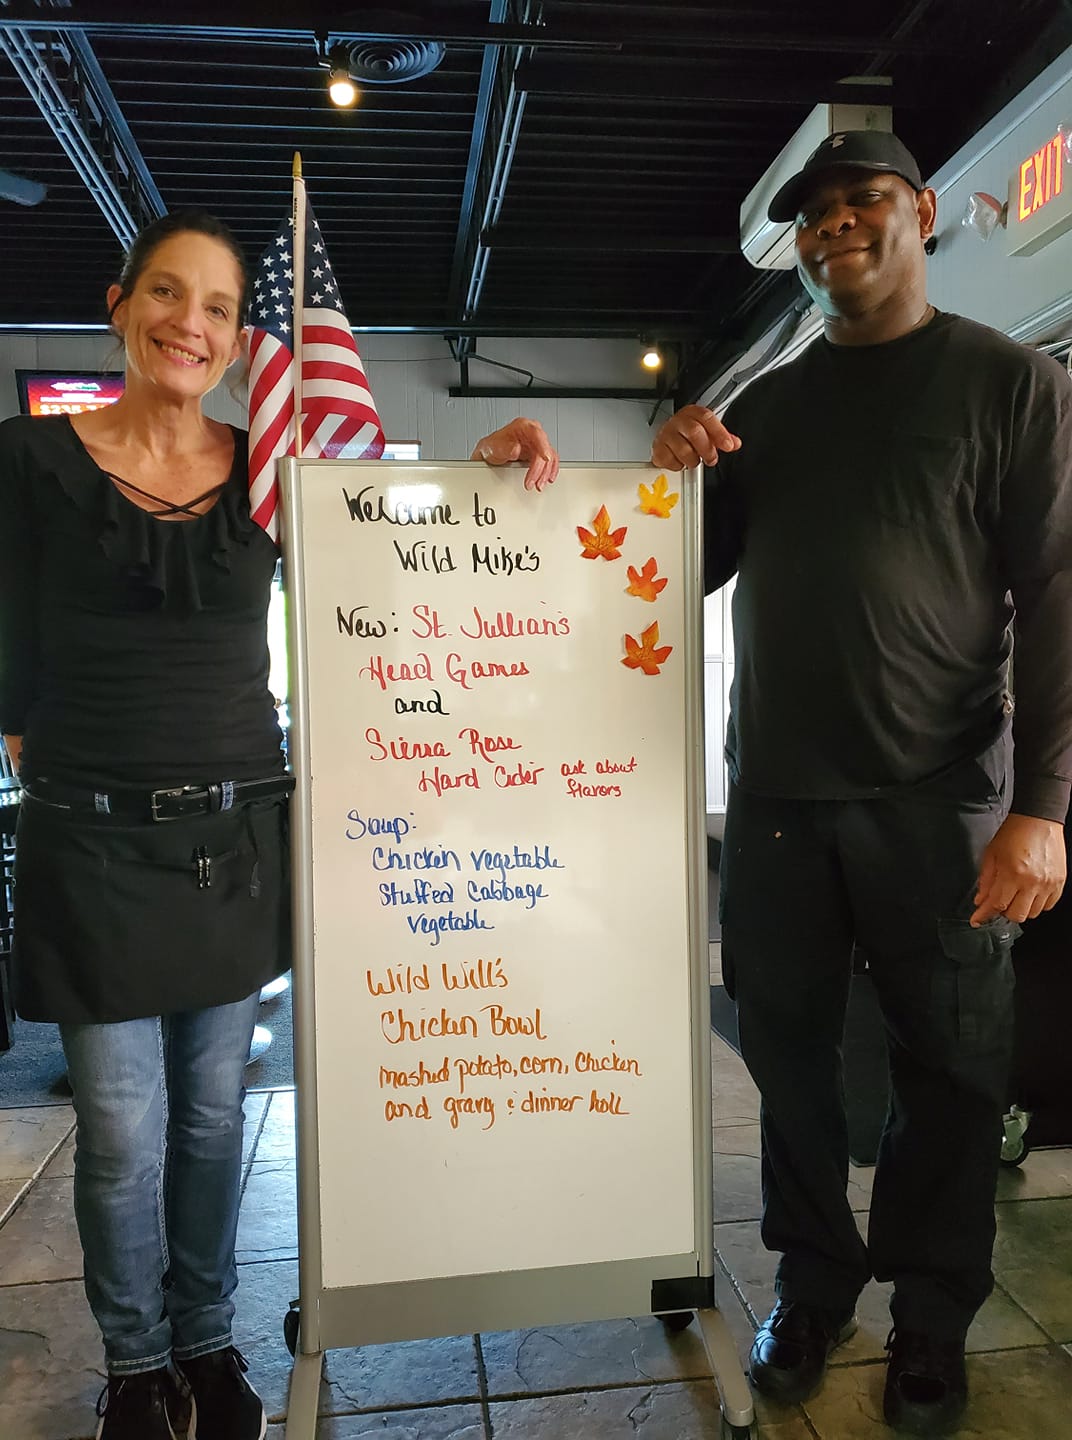 EXIT
Welcome to
Wild Mike's
New: St. Jullian's
Head Games
and
Sierra Rose
Hard Cider ask about
flavors
Soup:
Chicken vegetable
Stuffed Cabbage
Vegetable
Wild Will's
Chicken Bowl
mashed potato, corn, Chicken
and gravy & dinner Roll